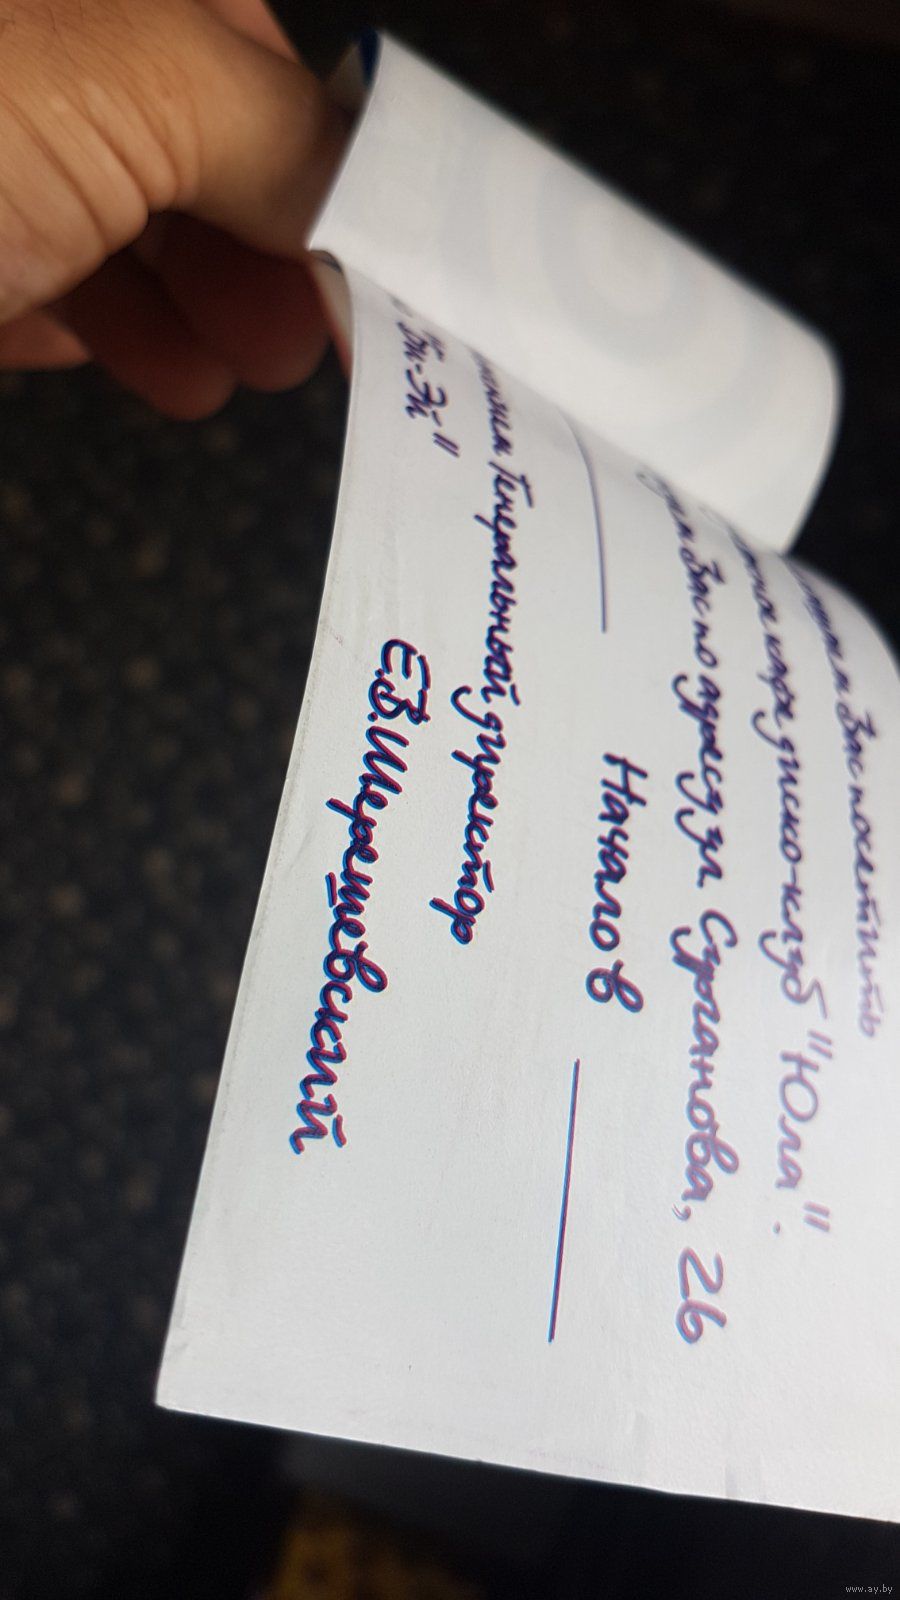 Вас посетить
диско-клуб "Юла".
Вас по адресу ул. Сурганова, 26
Начало в
Генеральный директор
Би-Эй"
Е.В. Шерешевский
www.ay.by